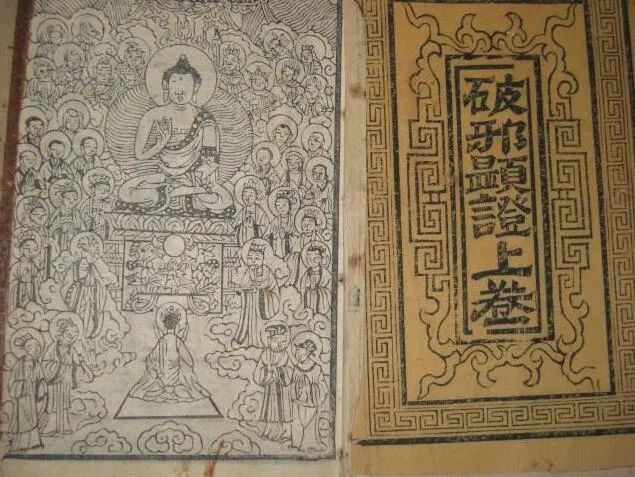 破邪顯證上卷